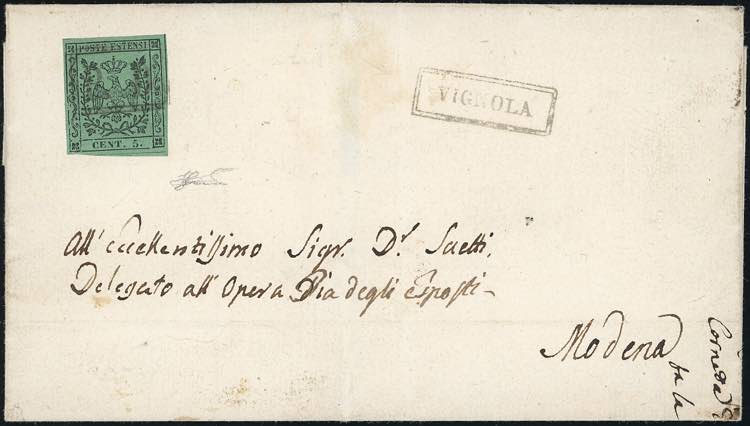 POSTE ESTENSI
CENT. 5.
VIGNOLA
All'eccellentissimo Sigr. Dr. Saetti,
Delegato all'Opera Pia degli Esposti-
Modena